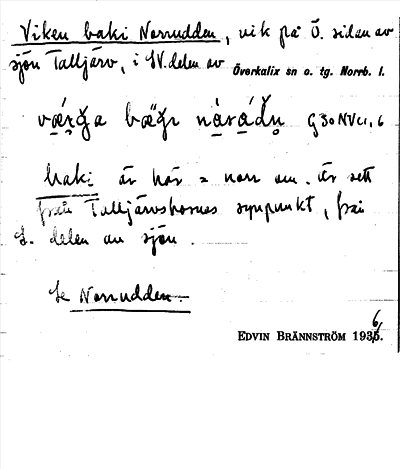 Viken baki Norrudden, vik på Ö. sidan av
sjön Talljärv, i SV. delen av
Överkalix sn o. tg. Norrb. l.
G 30 NV c1, 6
baki är här = norr om. Är sett
från Talljärvsbornas synpunkt, från
S. delen av sjön.
Se Norrudden.
EDVIN BRÄNNSTRÖM 1936.